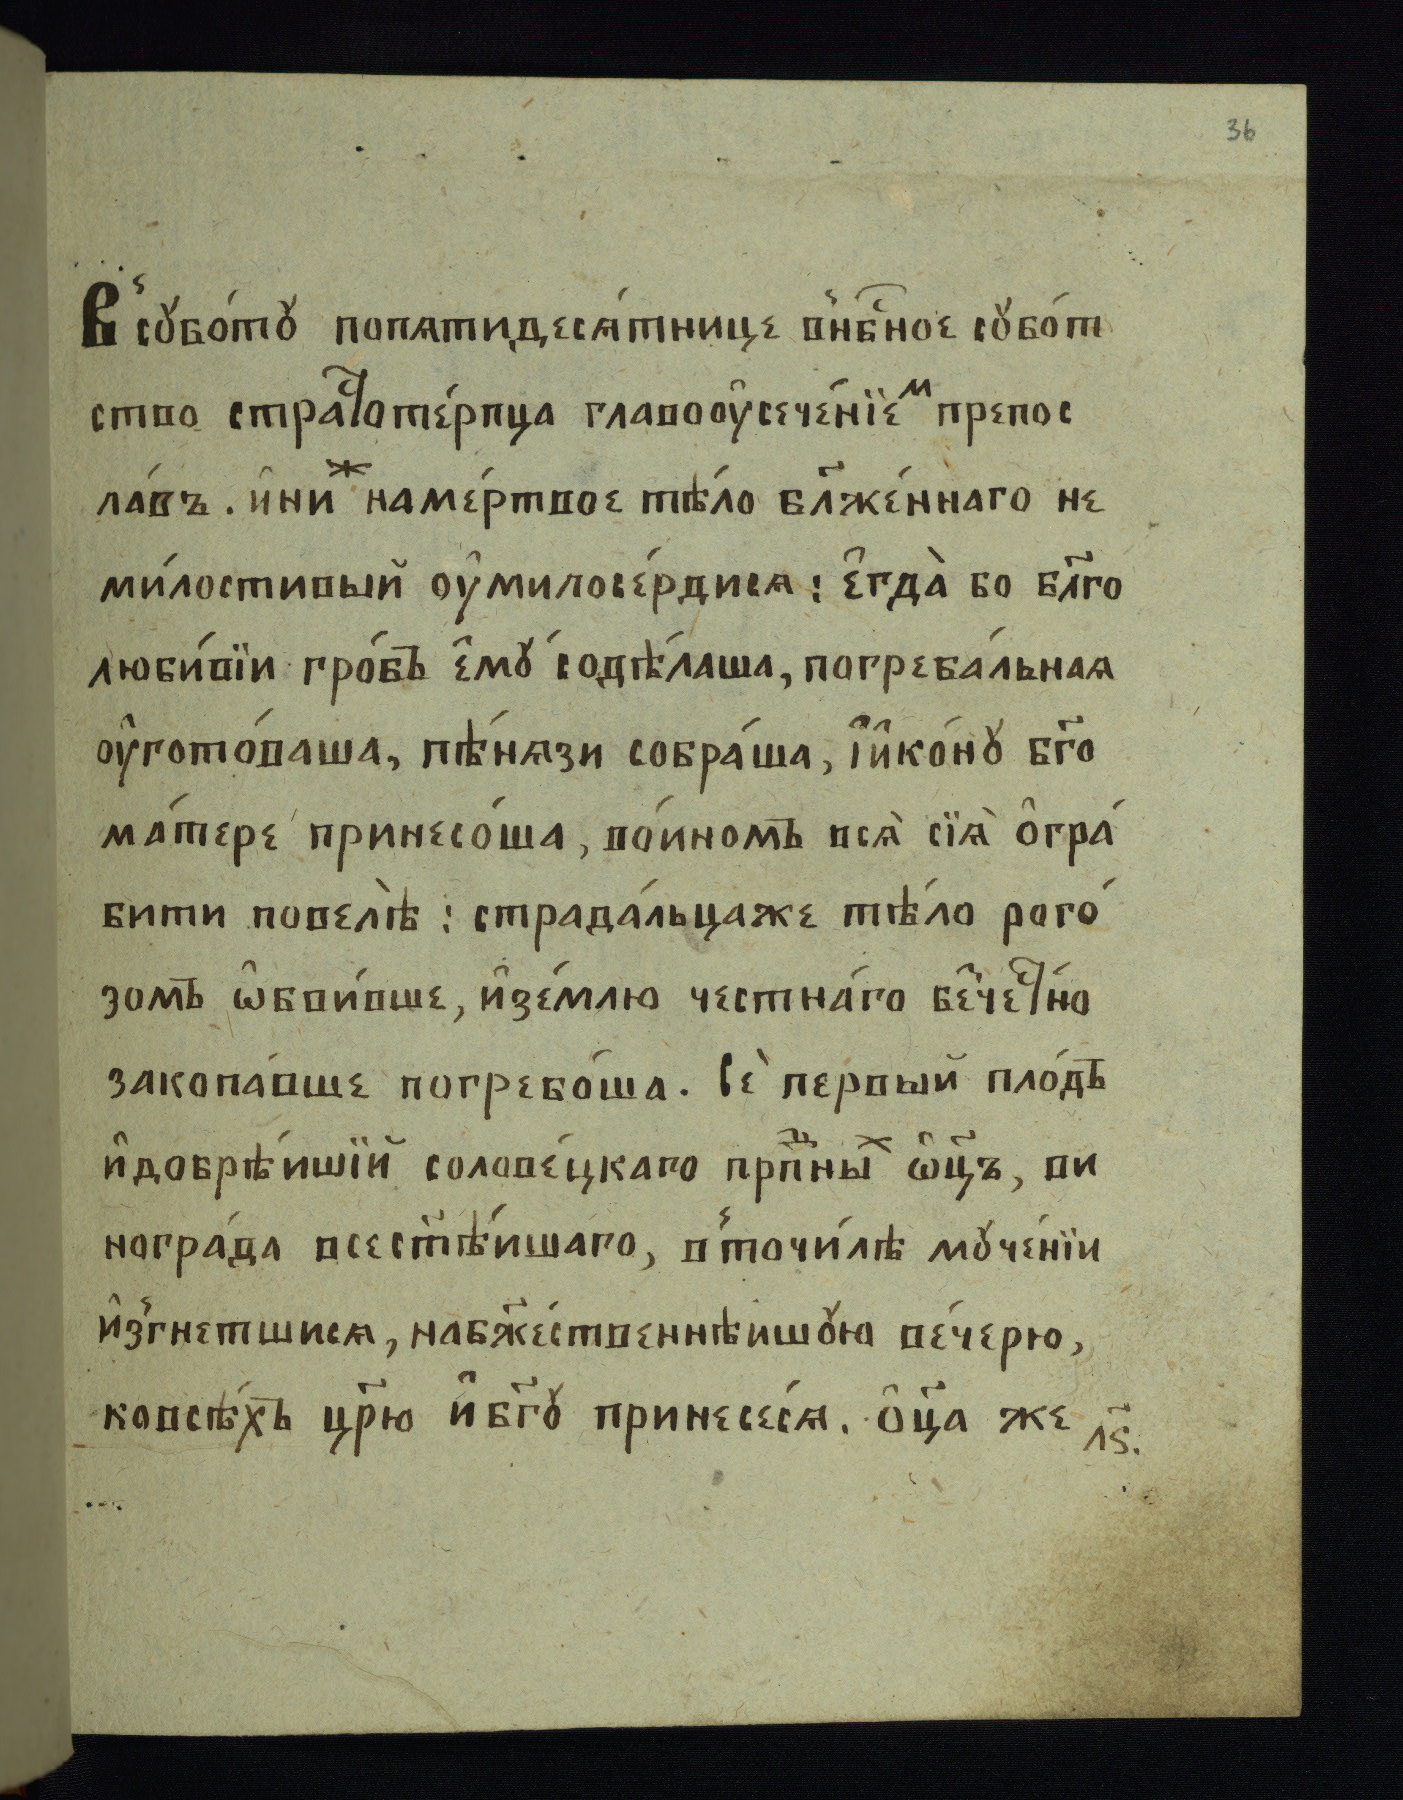 36
В̾ сꙋбо́тꙋ попѧтидесѧ́тнице в̾нб҇ное сꙋбо́т
ство страⷭ҇тоте́рпца главооу҆сече́нїеⷨ препос
ла́въ. и҆ниⷤ наме́ртвое тѣ́ло бл҃же́ннаго не
ми́лостивый оу҆милосе́рдисѧ: є҆гда̀ бо бл҃го
люби́вїи гро́бъ є҆мꙋ̀ содѣ́лаша, погреба́льнаѧ
оу҆гото́ваша, пѣ́нѧзи собра́ша, і҆и҆ко́нꙋ бг҃о
ма́тере принесо́ша, во́иномъ всѧ̀ сїѧ̀ о҆гра́
бити повелѣ̀: страда́льцаже тѣ́ло рого́
зомъ ѡ҆бви́вше, и҆зе́млю честна́го беⷥ҇чеⷭ҇тно
закопа́вше погребо́ша. Сѐ первый пло́дъ
и҆добрѣ́ишїй солове́цкаго прпⷣбныⷯ ѡ҆ц҃ъ, ви
ногра́да всест҃ѣ́ишаго, в̾точи́лѣ мꙋче́нїи
и҆з̾гнетшисѧ, набж҃е́ственнѣишꙋю ве́черю,
ковсѣ́хъ цр҃ю и҆бг҃ꙋ принесе́сѧ. О҆ц҃а же
л҃ѕ.